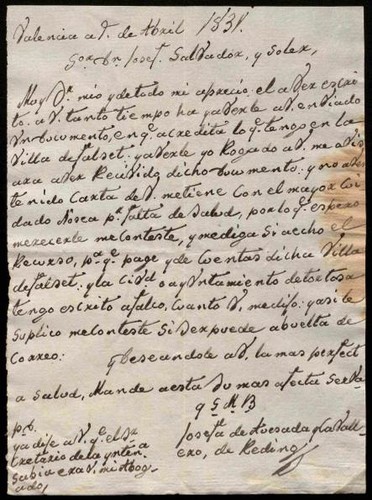 Valencia a 7. de Abril 1831.
Sor. Dn. Josef. Salvador, y Soler,
Muy Sr. mio y de todo mi aprecio, el aver escri
to. a V. tanto tiempo ha y averle a V. enviado
Un documento, en q.e acredita lo q.e tengo en la
Villa de falset: y averle yo Rogado a V. me avis
ara aver Recivido dicho documento: y no aver
tenido Carta de V. me tiene con el mayor Cui
dado No sea pr. falta de Salud, por lo q.e espero
merecerle me conteste, y me diga si a echo el
Recurso, pa. q.e page y de cuentas dicha Villa
de falset: y la Ciud o ayuntamiento de tortosa
tengo escrito a falco, cuanto V. me diso: y asi le
Suplico me conteste si Ser puede a buelta de
Correo:
y Deseandole a V. la mas perfect
a Salud, Mande a esta Su mas afecta Serva.
q S. M. B
Josefa de Quesada y la Vall
ero, de Reding
P.D.
ya dise a V. q.e el Sr.
tretario de la ynten.a
Sabia era V. mi Abog
ado,